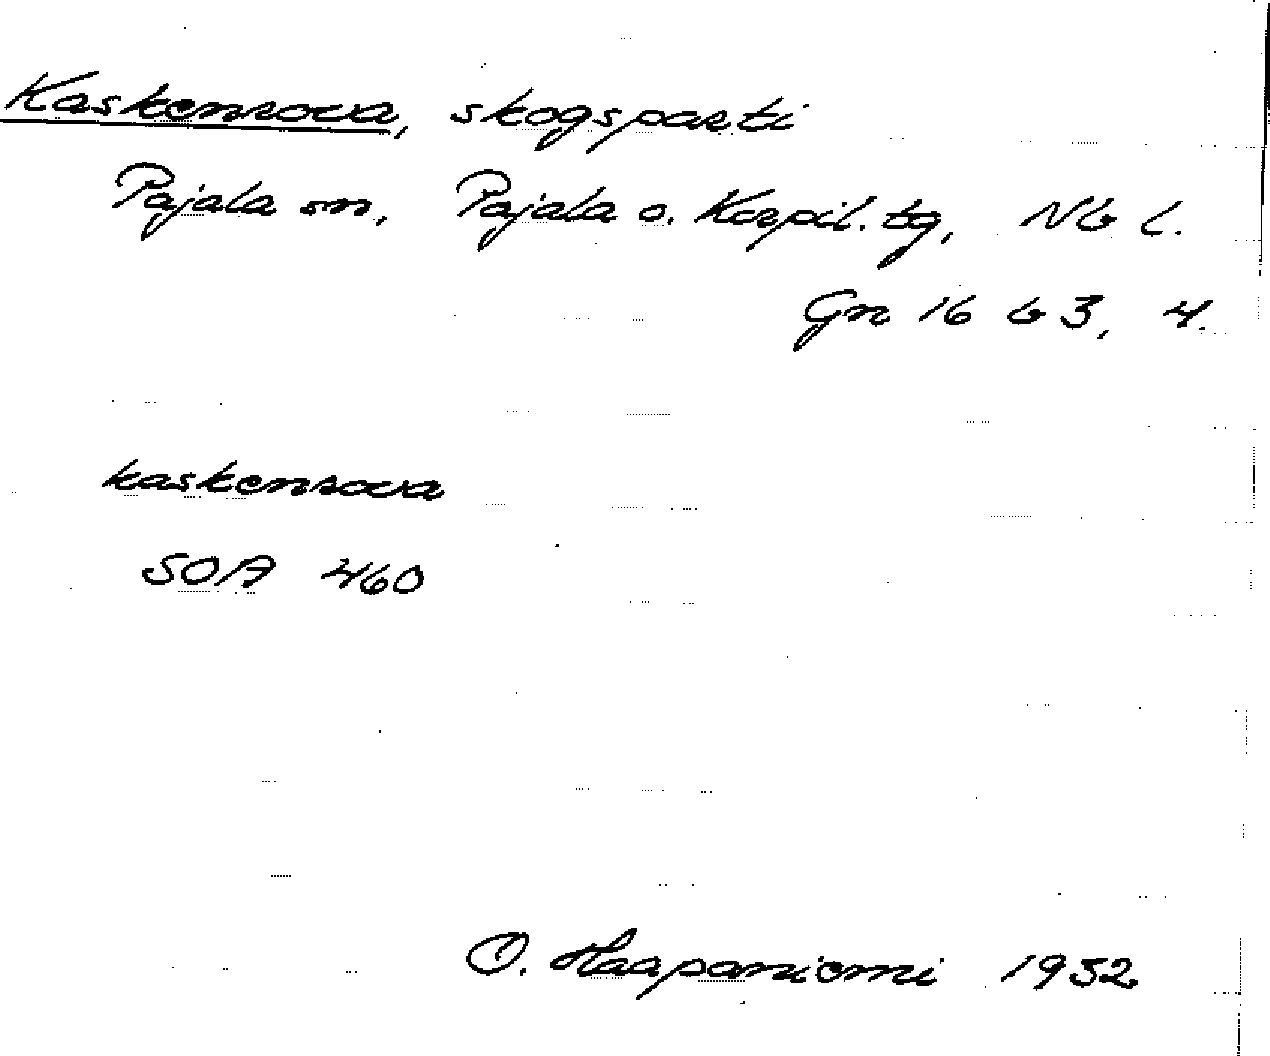 Kaskenrova, skogsparti
Pajala sn, Pajala o. Korpil. tg, Nb l.
Gn 16 b 3, 4.
kaskenrova
SOA 460
O. Haapaniemi 1952